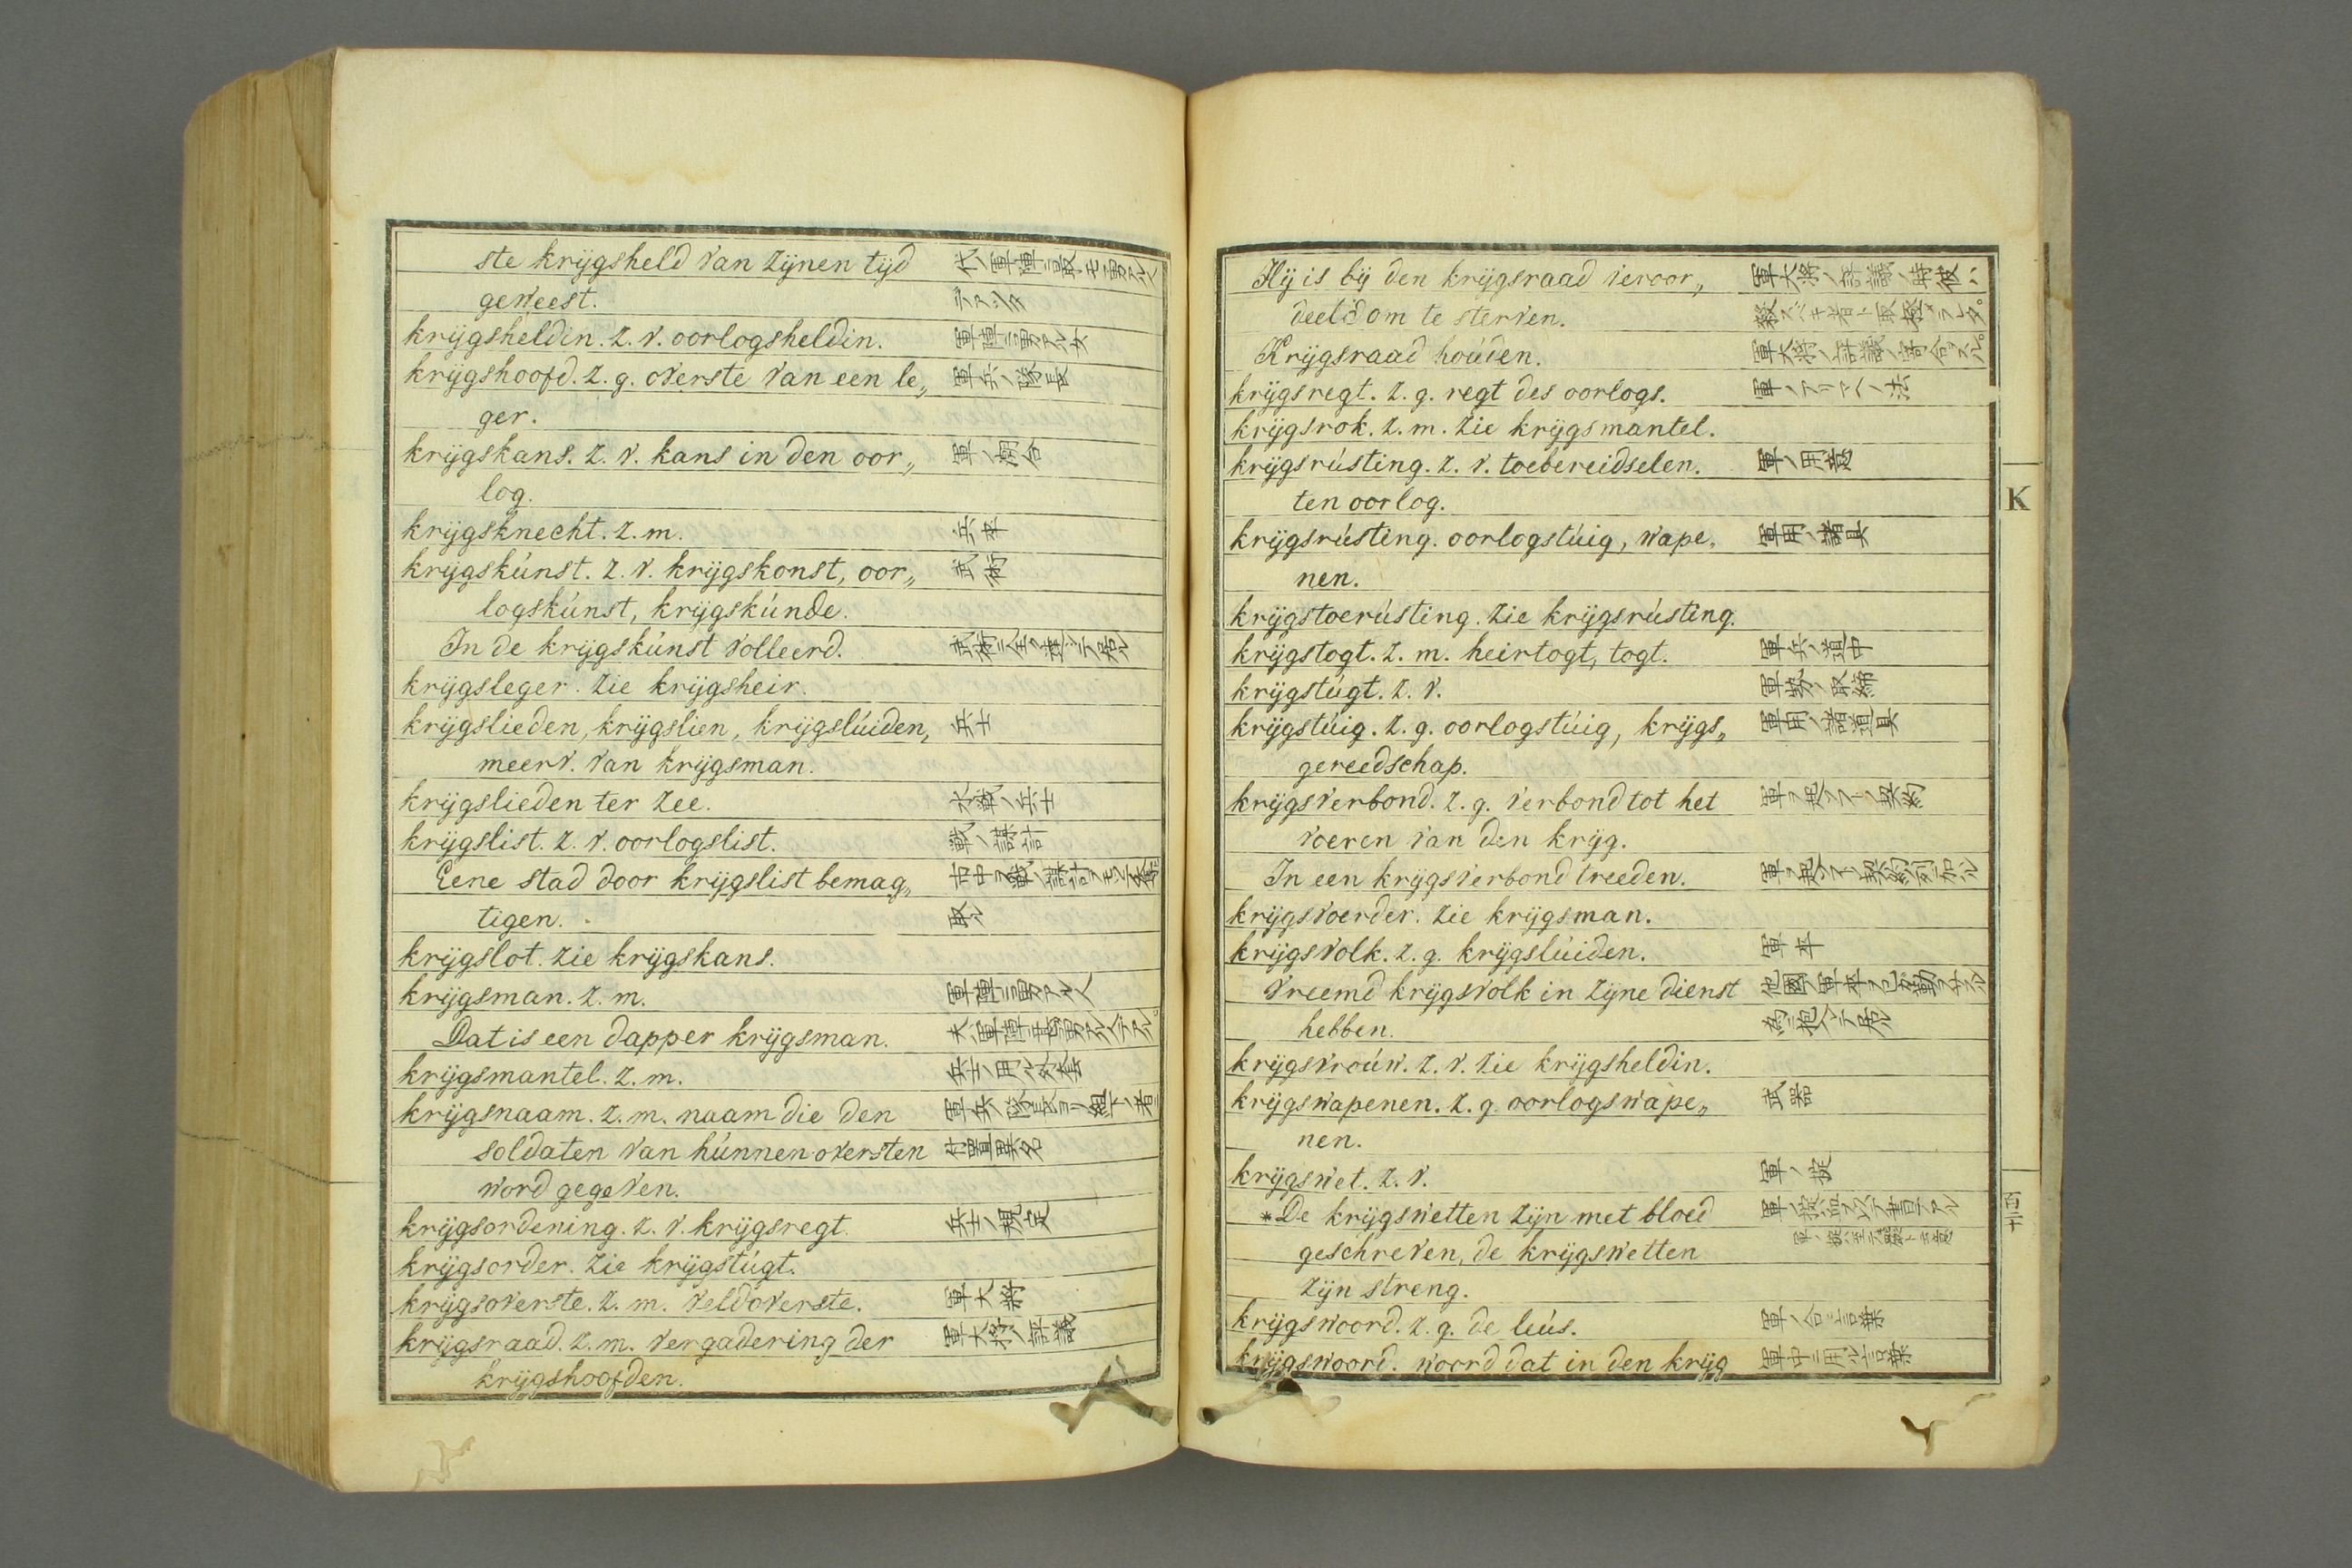 ste krijgsheld van zijnen tijd 代ノ軍陣ニ最モ勇アル人
geweest. デアツタ
krijgsheldin. z. v. oorlogsheldin. 軍陣ニ勇アル女
krijgshoofd. z. g. overste van een le„ 軍兵ノ隊長
ger.
krijgskans. z. v. kans in den oor„ 軍ノ合
log.
krijgsknecht. z. m. 兵卒
krijgskúnst. z. v. krijgskonst, oor„ 武術
logskúnst, krijgskúnde.
In de krijgskúnst volleerd. 武術ニ全ク達シテ居ル
krijgsleger. zie krijgsheir.
krijgslieden, krijgslien, krijgslúiden, 兵士
meerv. van krijgsman.
krijgslieden ter zee. 水戦ノ兵士
krijgslist. z. v. oorlogslist. 戦ノ謀計
Eene stad door krijgslist bemag„ 市中ヲ戦ノ謀計ヲモツテ奪
tigen. 取ル
krijgslot. zie krijgskans.
krijgsman. z. m. 軍陣ニ勇アル人
Dat is een dapper krijgsman. 夫ハ軍陣ニ甚勇アル人デアル
krijgsmantel. z. m. 兵士ノ用ル外套
krijgsnaam. z. m. naam die den 軍兵ノ隊長ヨリ組下ノ者ニ
soldaten van húnnen oversten 付置異名
word gegeven.
krijgsordening. z. v. krijgsregt. 兵士ノ規定
krijgsorder. zie krijgstúgt.
krijgsoverste. z. m. veldoverste. 軍大將
krijgsraad. z. m. vergadering der 軍大将ノ評議
krijgshoofden.
Hij is bij den krijgsraad veroor„ 軍大將ノ評議ノ時彼ハ
deeld om te sterven. 殺スベキ者ト取極ラレタ。
Krijgsraad hoúden. 軍大將ノ評議ノ寄合ヲスル。
krijgsregt. z. g. regt des oorlogs. 軍ノ法
krijgsrok. z. m. zie krijgsmantel.
krijgsrústing. z. v. toebereidselen. 軍ノ用意
ten oorlog.
krijgsrústing. oorlogstúig, wape„ 軍用ノ諸具
nen.
krijgstoerústing. zie krijgsrústing.
krijgstogt. z. m. heirtogt, togt. 軍兵ノ道中
krijgstúgt. z. v. 軍勢ノ取締
krijgstúig. z. g. oorlogstúig, krijgs„ 軍用ノ諸道具
gereedschap.
krijgsverbond. z. g. verbond tot het 軍ヲ起ス契約
voeren van den krijg.
In een krijgsverbond treeden. 軍ヲ起ス契約ノ列ニ加ル
krijgsvoerder. zie krijgsman.
krijgsvolk. z. g. krijgslúiden. 軍卒
Vreemd krijgsvolk in zijne dienst 他國ノ軍卒ヲ己ガ勤ヲサスル
hebben. 為ニ抱ヘテ居ル
krijgsvroúw. z. v. zie krijgsheldin.
krijgswapenen. z. g. oorlogswape„ 武器
nen.
krijgswet. z. v. 軍ノ掟
*De krijgswetten zijn met bloed 軍ノ掟ハ血ヲ以テ書テアル
geschreven, de krijgswetten 軍ノ掟ハ至テ嚴ト云意
zijn streng.
krijgswoord. z. g. de leús. 軍ノ合言葉
krijgswoord. woord dat in den krijg 軍中ニ用ル言葉
K